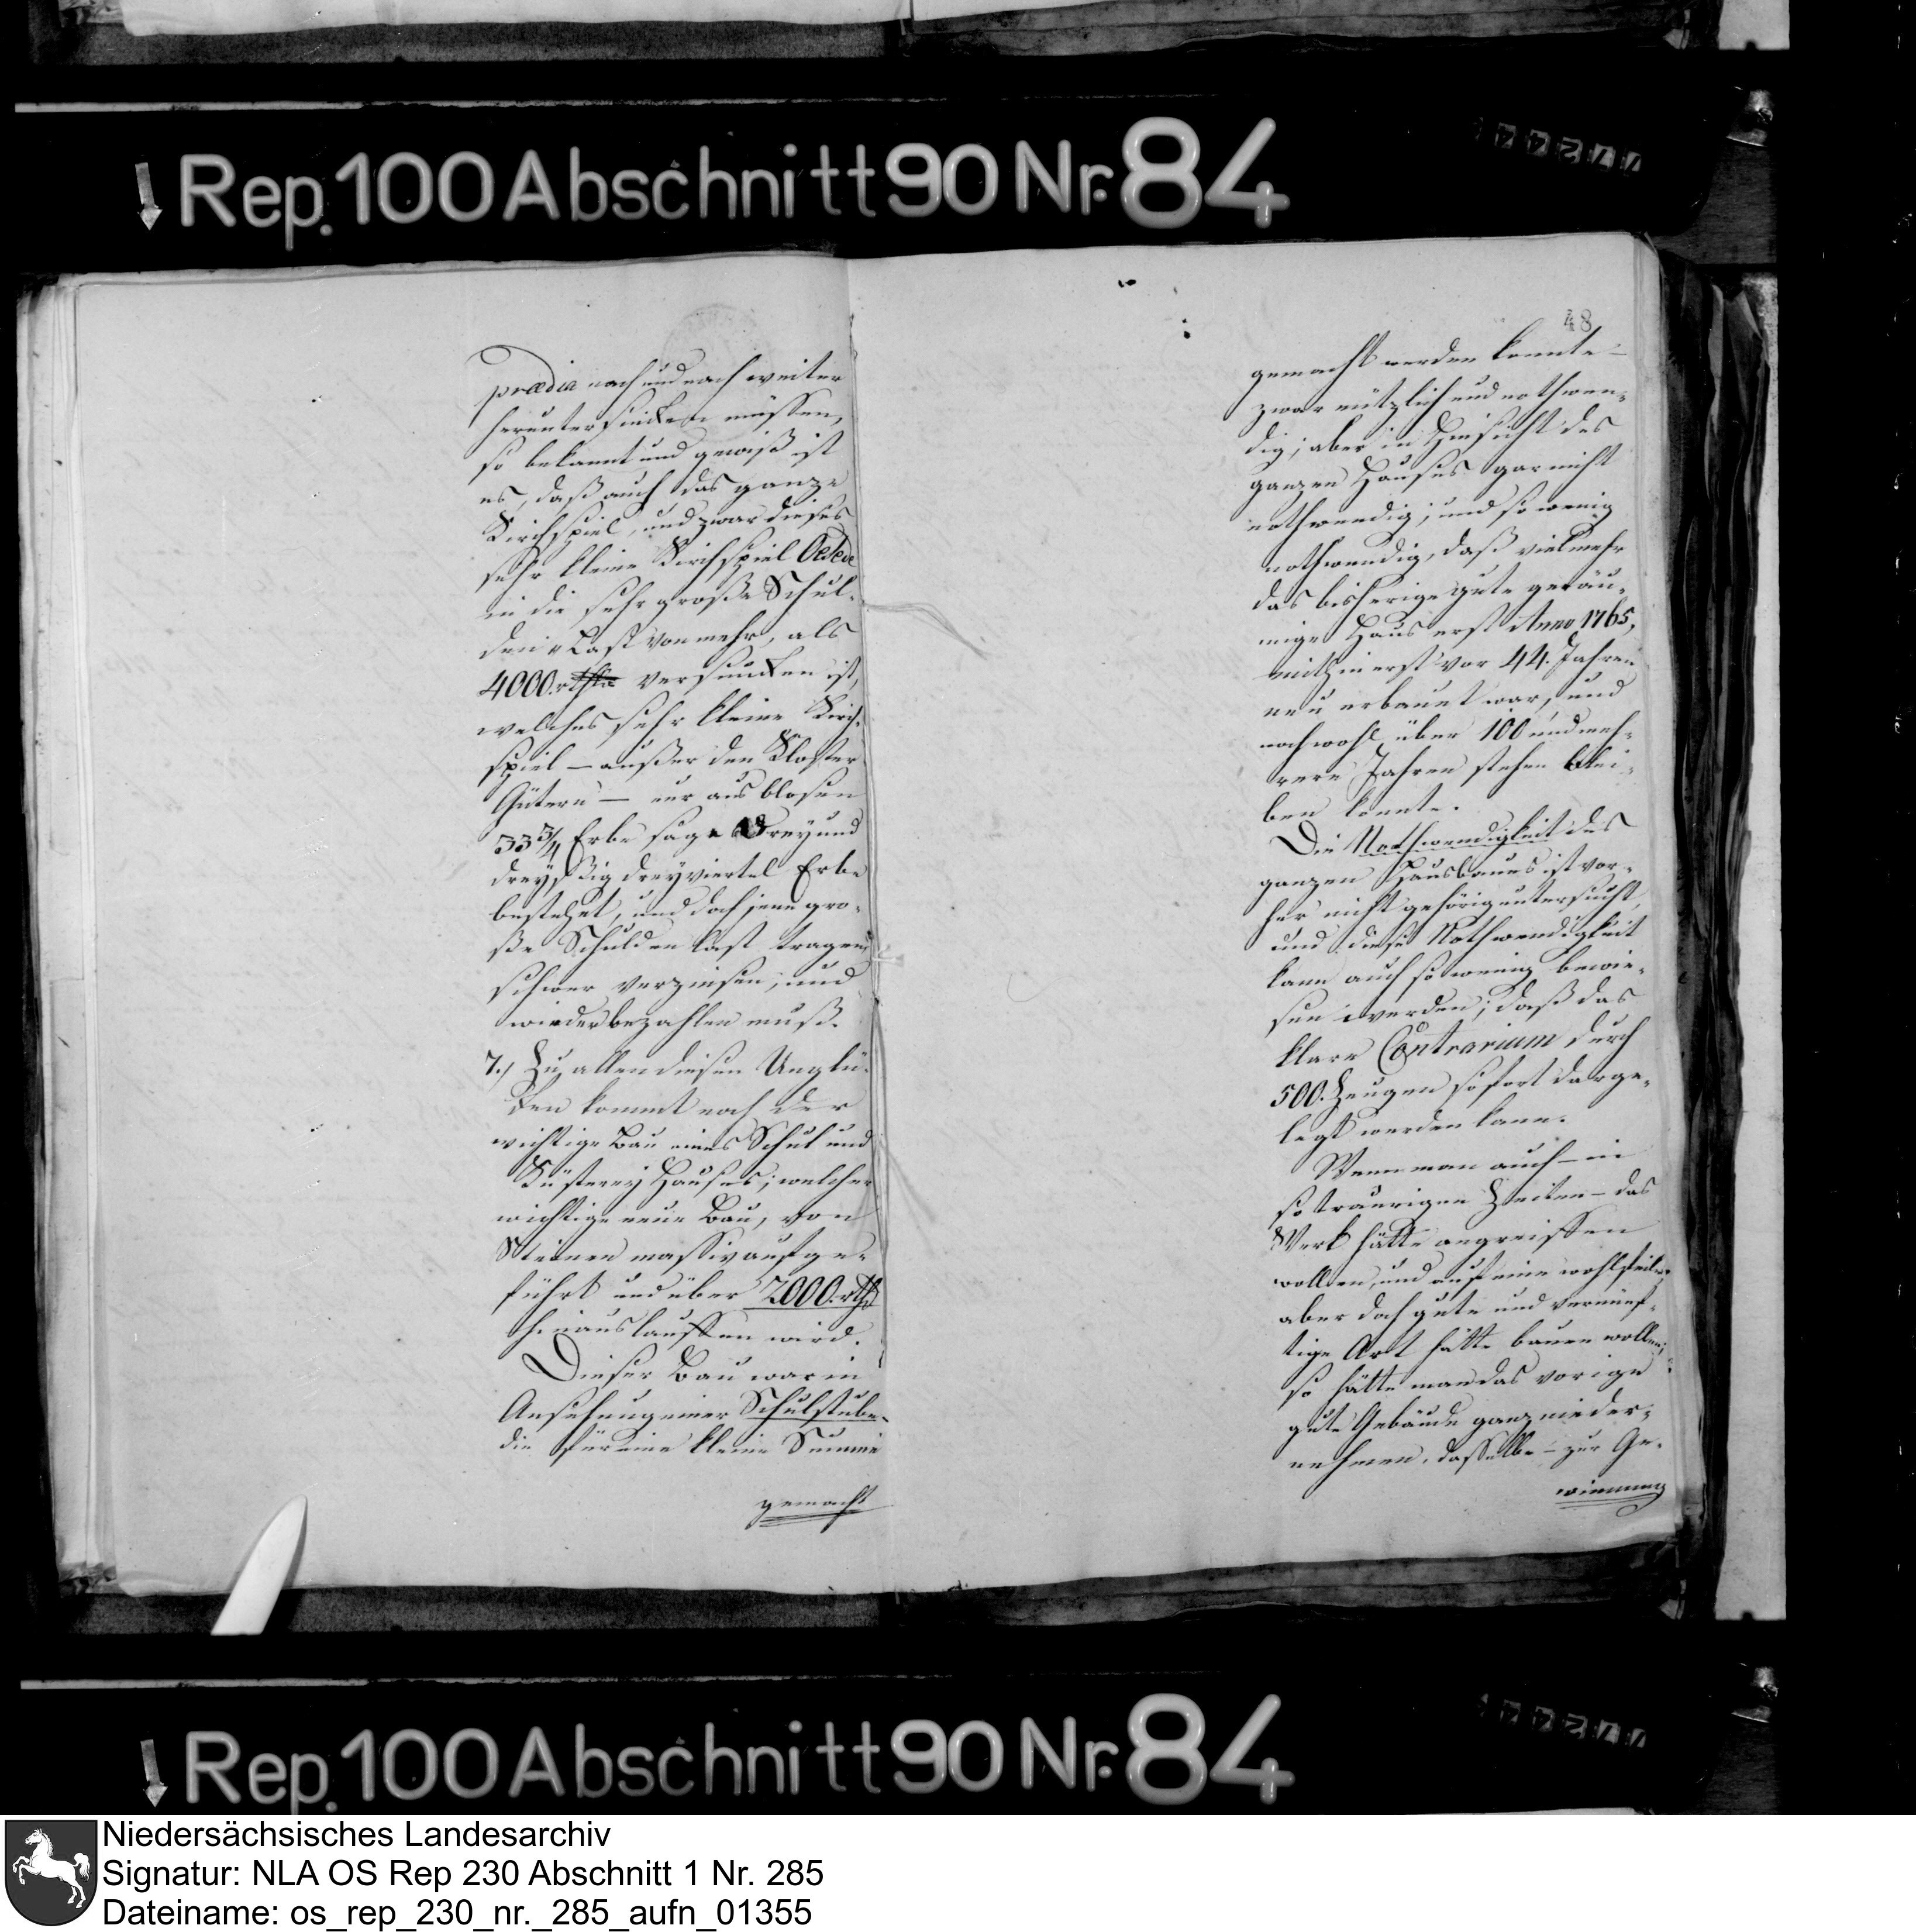 Rep. 100 Abschnitt 90 Nr. 84
77244
prædia nach und nach weiter
heruntersincken müssen,
so bekannt und gewiß ist
es, daß auch das ganze
Kirchspiel, und zwar dieses
sehr kleine Kirchspiel Oesede
in die sehr große Schul-
den Last von mehr, als
4000. rthlr versuncken ist,
welches sehr kleine Kirch-
spiel – außer den Kloster
Gütern – nur aus blosen
33 3/4 Erbe sage Drey und
dreyßig dreyviertel Erbe
bestehet, und doch jene gro-
ße Schulden last tragen
schwer verzinsen, und
wieder bezahlen muß.
7.) Zu allen diesen Unglü-
cken kommt noch der
wichtige Bau eines Schul und
Küsterey Hauses; welcher
wichtige neue Bau, von
Steinen massiv aufge-
führt und über 2000. rthlr
hinauslauffen wird.
Dieser Bau war in
Ansehung einer Schulstube
die für eine kleine Summe
gemacht
48
gemacht werden konnte –
zwar nützlich und nothwen-
dig; aber in Hinsicht des
ganzen Hauses gar nicht
nothwendig; und so wenig
nothwendig, daß vielmehr
das bisherige gute geräu-
mige Haus erst Anno 1765,
mithin erst vor 44. Jahren
neu erbauet war, und
noch wohl über 100 und meh-
rere Jahren stehen blei-
ben konnte.
Die Nothwendigkeit des
ganzen Hausbaues ist vor-
her nicht gehörig untersucht,
und diese Nothwendigkeit
kann auch so wenig bewie-
sen werden; daß das
klare Contrarium durch
500. Zeugen sofort darge-
legt werden kann.
Wenn man auch – in
so traurigen Zeiten – das
Werk hätte angreiffen
wollen, und auf eine wohlfeile,
aber doch gute und vernünf-
tige Art hätte bauen wollen;
so hätte man das vorige
gute Gebäude ganz nieder-
nehmen, dasselbe – zur Ge-
winnung
Rep. 100 Abschnitt 90 Nr. 84
77244
Niedersächsisches Landesarchiv
Signatur: NLA OS Rep 230 Abschnitt 1 Nr. 285
Dateiname: os_rep_230_nr._285_aufn_01355